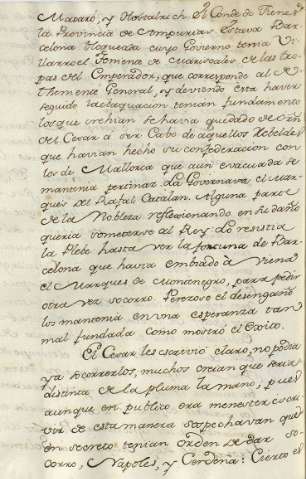 Mataró, y Hostalrich. El Conde de
la Provincia de Ampurias. Estava Bar-
celona bloqueada cuyo Govierno tenia Vi-
llarroel Theniente de Mariscales de las tro-
pas del Emperador, que corresponde al de
Theniente General, y deviendo este haver
seguido la evaquacion tenian fundamento
los que crehian se havia quedado de orden
del Cesar á ser Cabo de aquellos Rebeldes
que havian hecho su confederacion con
los de Mallorca que aun evacuada se
mantenia pertinaz. La Governava el Mar-
qués del Rafal Catalan. Alguna parte
de la Nobleza reflexionando en el daño
queria someterse al Rey; lo resistia
la Plebe hasta ver la fortuna de Bar-
celona que havia embiado á Viena
el Marques de Montenegro, para pedir
otra vez socorro. Perezoso el desengaño
los mantenia en una esperanza tan
mal fundada como mostró el exito.
El Cesar les escrivió claro, no podia
ya socorrerlos, muchos creian que seria
distinta de la pluma la mano, pues
aunque en publico era menester escri-
vir de esta manera sospechavan que
en secreto tenian orden de dar so-
corro, Napoles, y Cerdeña: Cierto es